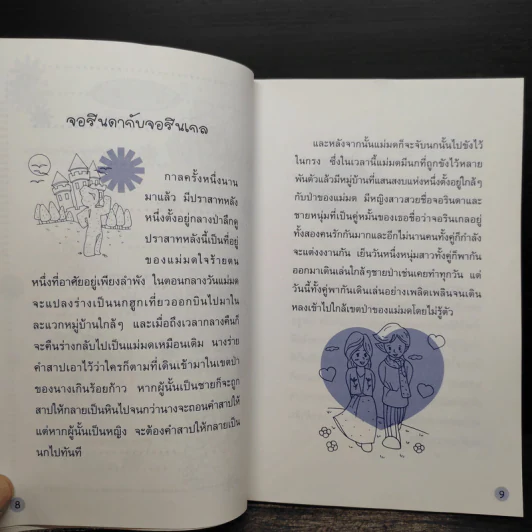 จอรินดากับจอรินเกล
กาลครั้งหนึ่งนาน
มาแล้ว มีปราสาทหลัง
หนึ่งตั้งอยู่กลางป่าลึกดู
ปราสาทหลังนี้เป็นที่อยู่
ของแม่มดใจร้ายตน
หนึ่งที่อาศัยอยู่เพียงลำพัง ในตอนกลางวันแม่มด
จะแปลงร่างเป็นนกฮูกเที่ยวออกบินไปมาใน
ละแวกหมู่บ้านใกล้ๆ และเมื่อถึงเวลากลางคืนก็
จะคืนร่างกลับไปเป็นแม่มดเหมือนเดิม นางร่าย
คำสาปเอาไว้ว่าใครก็ตามที่เดินเข้ามาในเขตป่า
ของนางเกินร้อยก้าว หากผู้นั้นเป็นชายก็จะถูก
สาปให้กลายเป็นหินไปจนกว่านางจะถอนคำสาปให้
แต่หากผู้นั้นเป็นหญิง จะต้องคำสาปให้กลายเป็น
นกไปทันที
8
และหลังจากนั้นแม่มดก็จะจับนกนั้นไปขังไว้
ในกรง ซึ่งในเวลานี้แม่มดมีนกที่ถูกขังไว้หลาย
พันตัวแล้วมีหมู่บ้านที่แสนสงบแห่งหนึ่งตั้งอยู่ใกล้ๆ
กับป่าของแม่มด มีหญิงสาวสวยชื่อจอรินดาและ
ชายหนุ่มที่เป็นคู่หมั้นของเธอชื่อว่าจอรินเกลอยู่
ทั้งสองคนรักกันมากและอีกไม่นานคนทั้งคู่ก็กำลัง
จะแต่งงานกัน เย็นวันหนึ่งหนุ่มสาวทั้งคู่ก็พากัน
ออกมาเดินเล่นใกล้ๆชายป่าเช่นเคยทำทุกวัน แต่
วันนี้ทั้งคู่พากันเดินเล่นอย่างเพลิดเพลินจนเดิน
หลงเข้าไปใกล้เขตป่าของแม่มดโดยไม่รู้ตัว
9